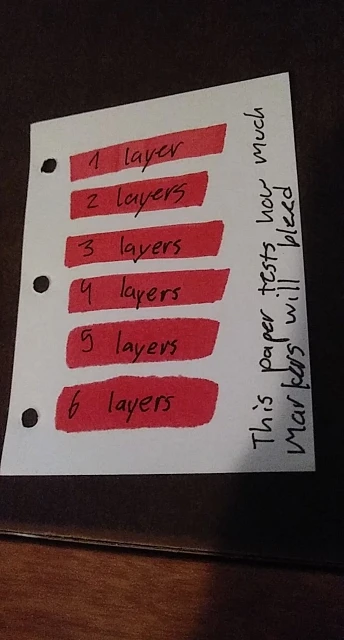 1 layer
2 layers
3 layers
4 layers
5 layers
6 layers
This paper tests how much
markers will bleed